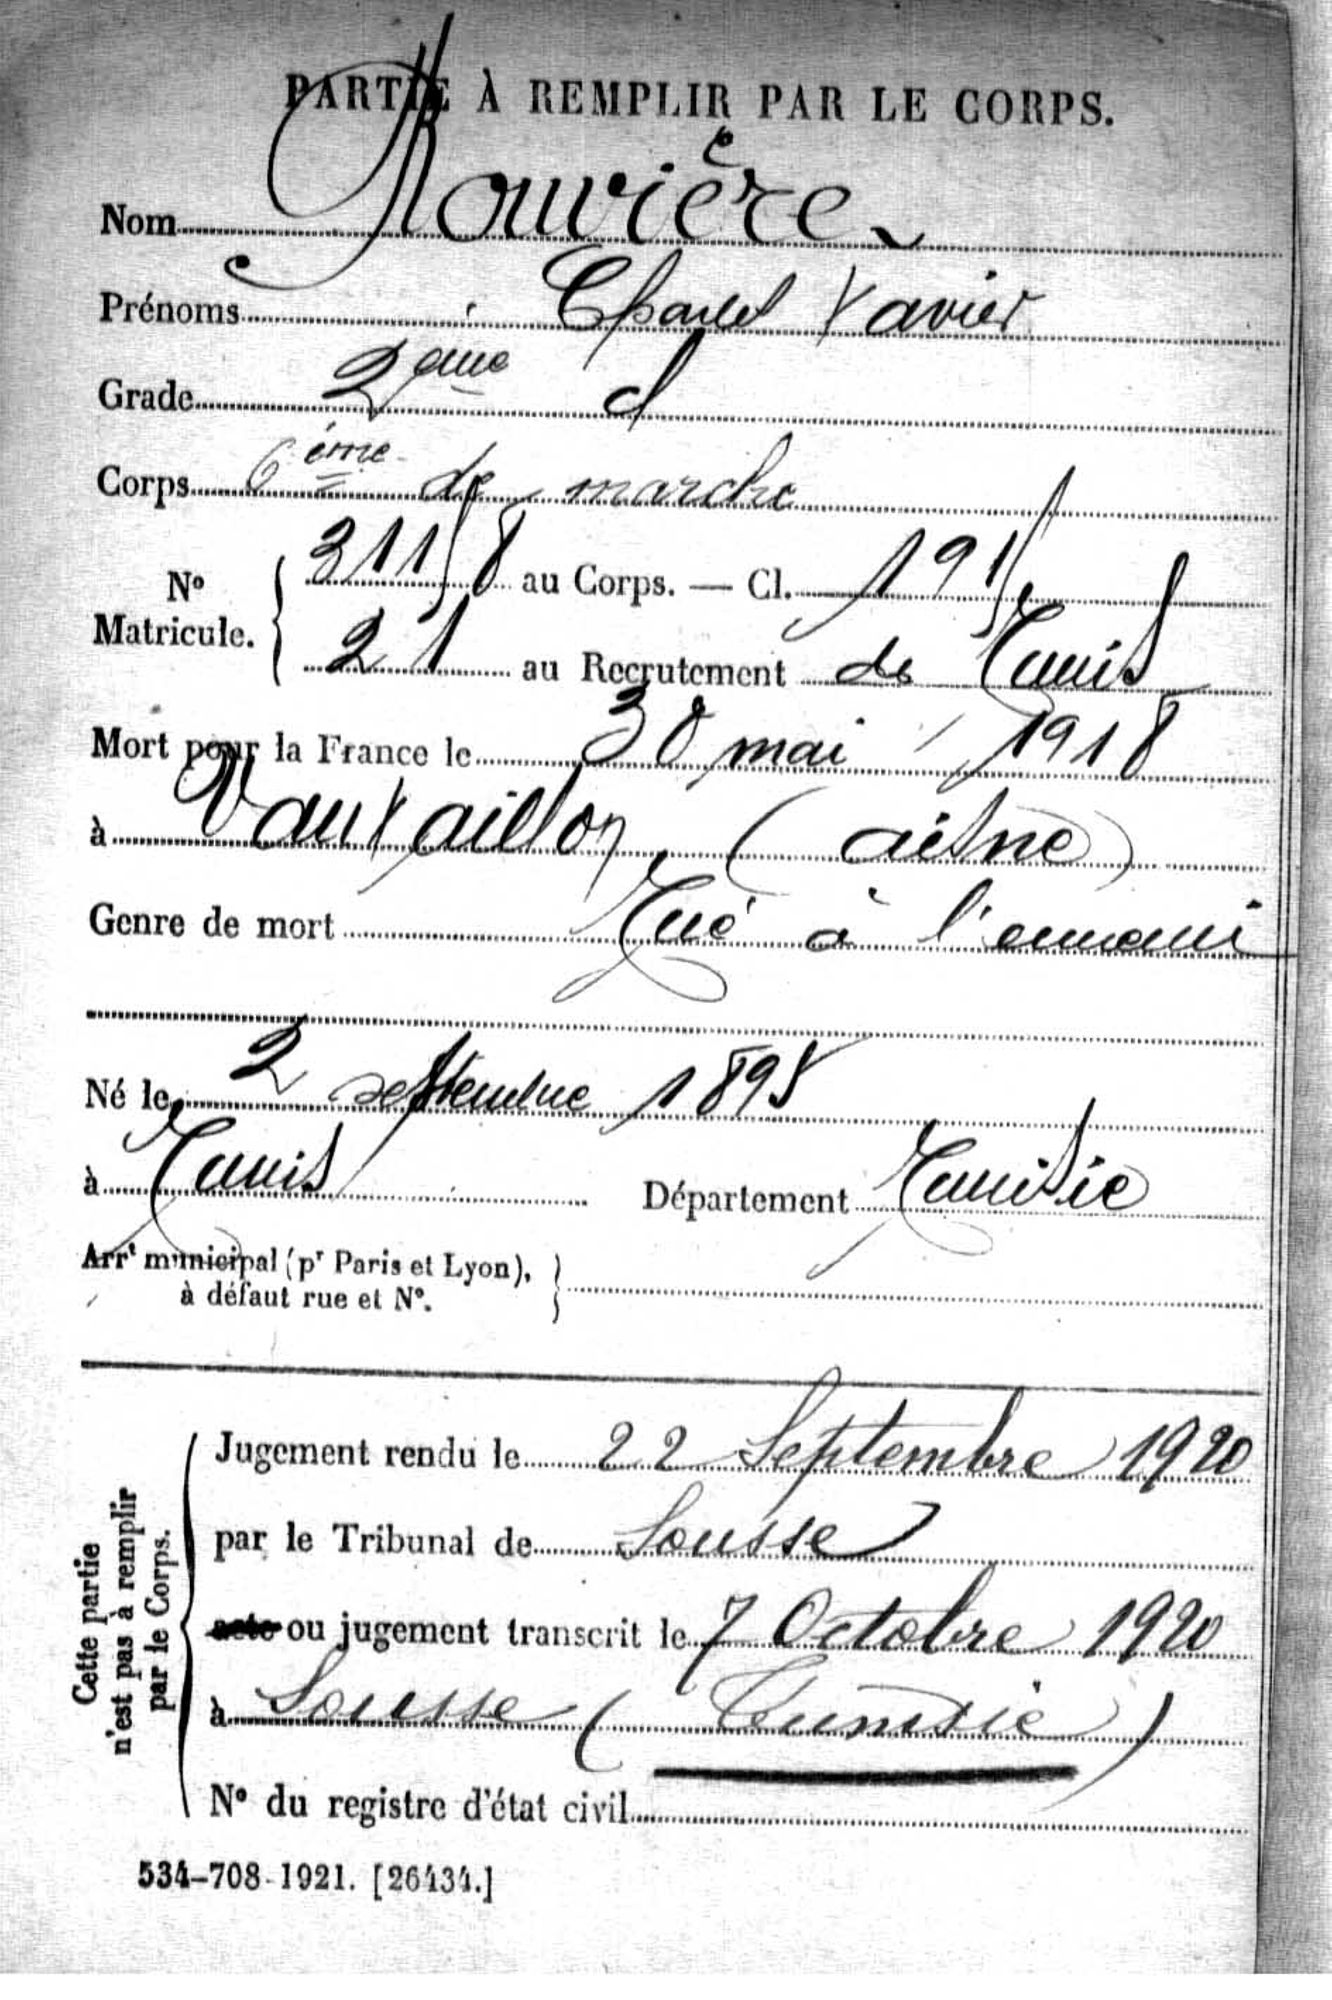 PARTIE À REMPLIR PAR LE CORPS.
Nom Rouvière
Prénoms Charles Xavier
Grade 2ème cl
Corps 6ème de marche
No Matricule. 31158 au Corps. — Cl. 1915
21 au Recrutement de Tunis
Mort pour la France le 30 mai 1918
à Vauxaillon (aisne)
Genre de mort Tué à l'ennemi
Né le 2 septembre 1895
à Tunis Département Tunisie
Arrt municipal (pr Paris et Lyon),
à défaut rue et No.
Cette partie
n'est pas à remplir
par le Corps.
Jugement rendu le 22 Septembre 1920
par le Tribunal de Sousse
acte ou jugement transcrit le 7 Octobre 1920
à Sousse (Tunisie)
No du registre d'état civil
534-708-1921. [26434.]